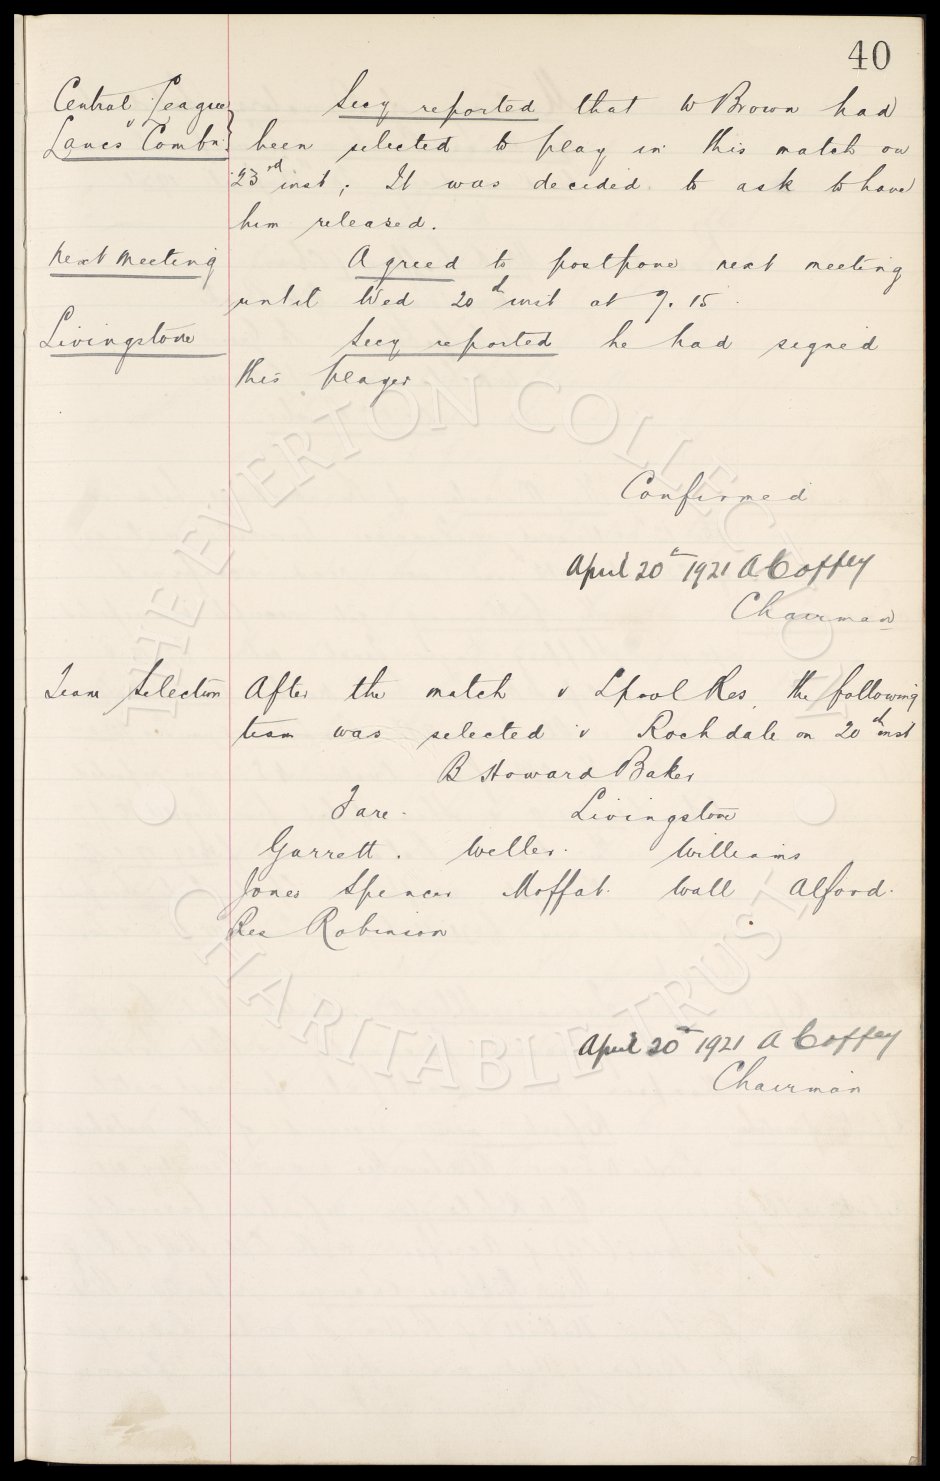 40
Central League
v
Lancs Combn.
Secy reported that W Brown had
been selected to play in this match on
23rd inst; It was decided to ask to have
him released.
Next Meeting
Agreed to postpone next meeting
until Wed 20th inst at 7.15.
Livingstone
Secy reported he had signed
this player
Confirmed
April 20th 1921 A Coffey
Chairman
Team Selection
After the match v Lpool Res. the following
team was selected v Rochdale on 20th inst
B Howard Baker
Fare. Livingstone
Garrett. Weller. Williams
Jones Spencer Moffat. Wall Alford.
Res Robinson
April 20th 1921 A Coffey
Chairman
THE EVERTON COLLECTION
CHARITABLE TRUST